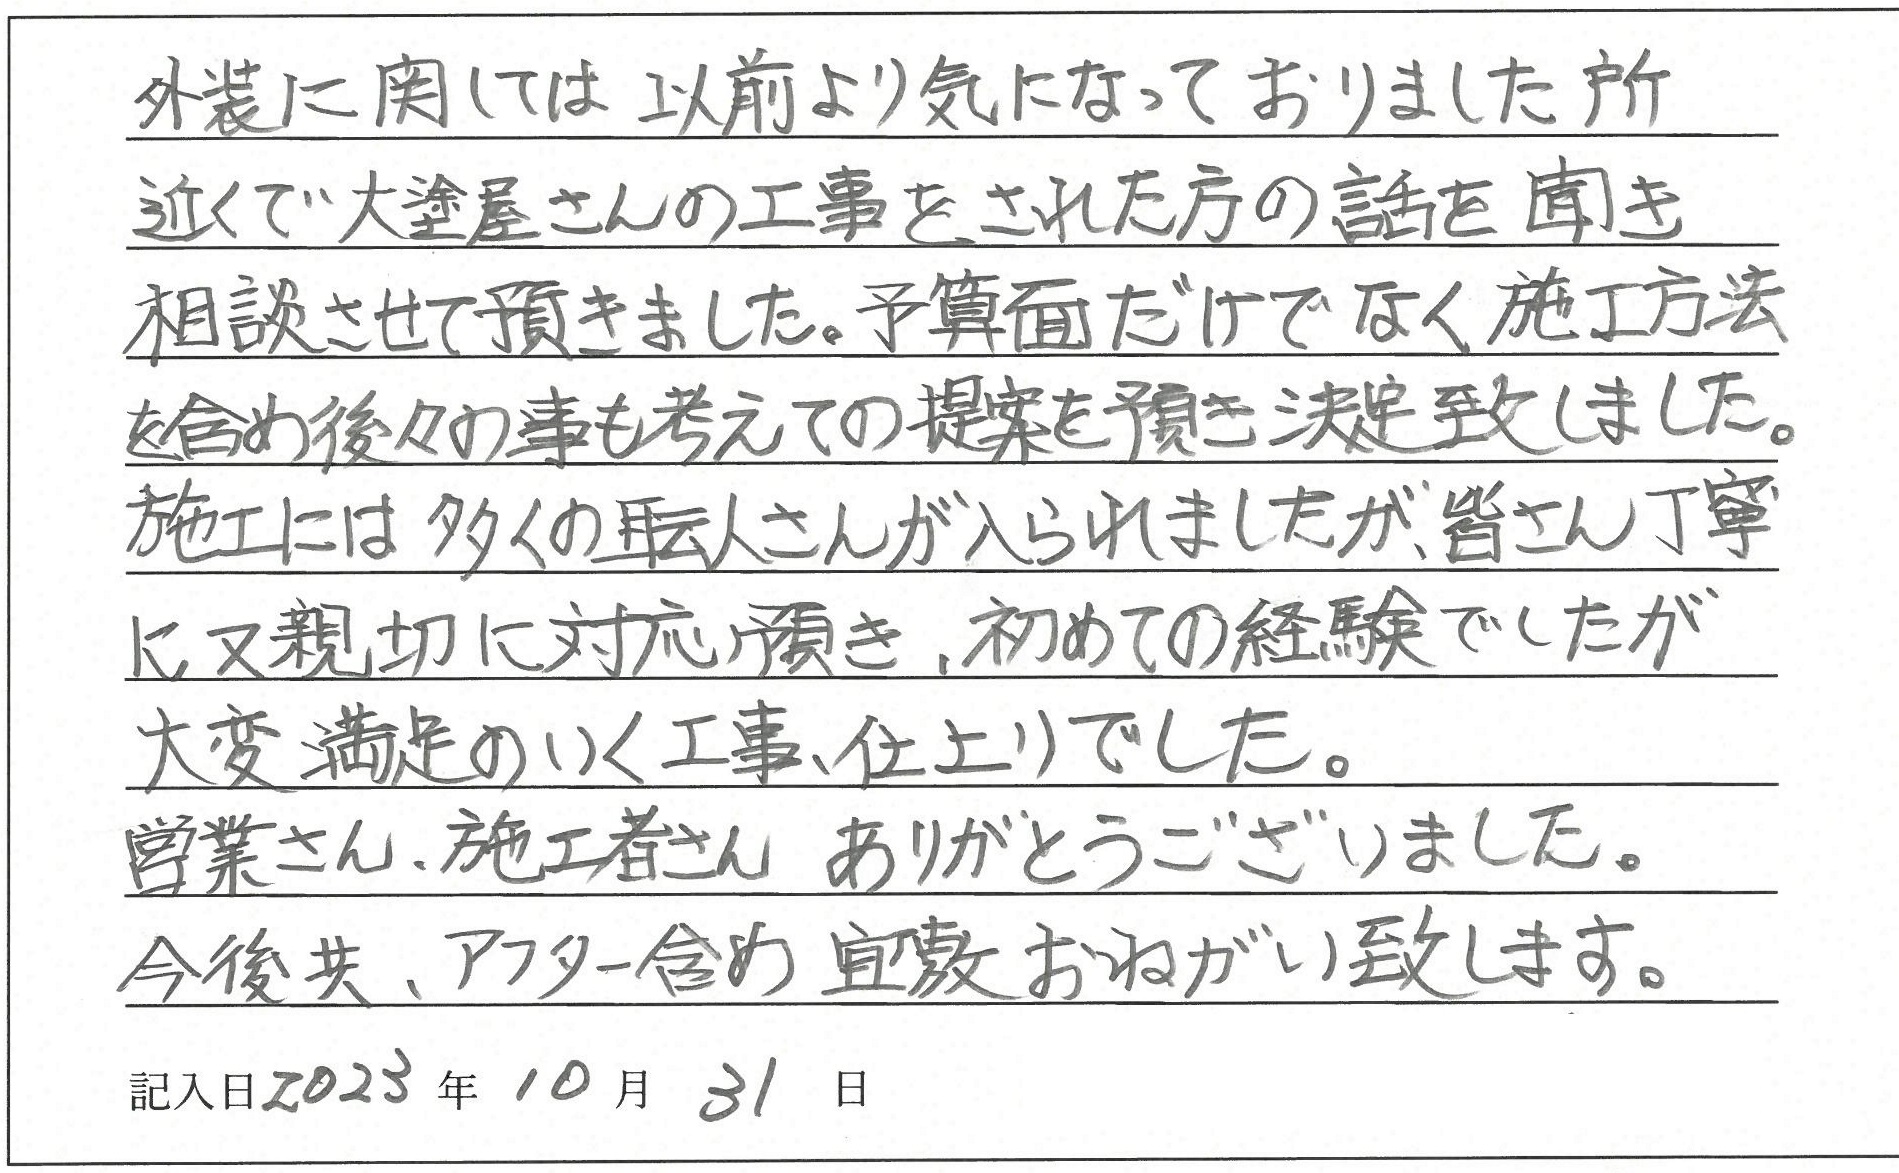 外装に関しては 以前より気になって おりました所
近くで大塗屋さんの工事をされた方の話を聞き
相談させて預きました。予算面だけでなく施工方法
を含め後々の事も考えての提案を預き決定致しました。
施工には多くの転人さんが入られましたが、皆さん丁寧
に又親切に対応預き、初めての経験でしたが
大変満足のいく工事、仕上りでした。
営業さん、施工者さん ありがとうございました。
今後共、アフター含め 宜敷おねがい致します。
記入日2023年 10月 31 日